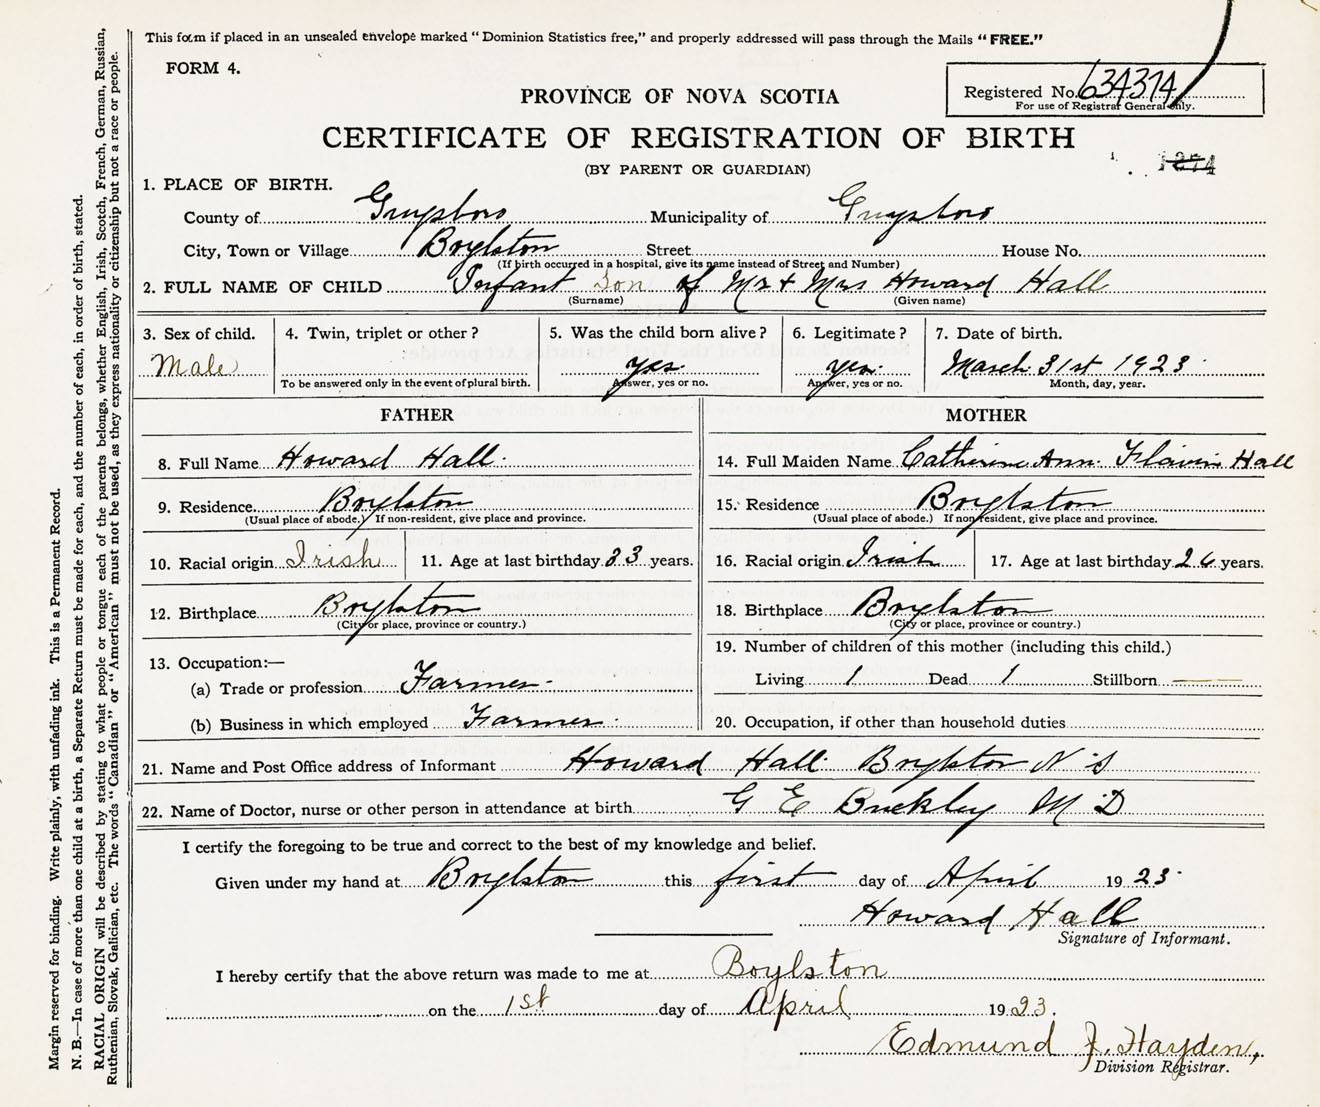 This form if placed in an unsealed envelope marked "Dominion Statistics free," and properly addressed will pass through the Mails "FREE."
FORM 4.
Registered No. 634374
For use of Registrar General only.
PROVINCE OF NOVA SCOTIA
CERTIFICATE OF REGISTRATION OF BIRTH
(BY PARENT OR GUARDIAN)
1. PLACE OF BIRTH.
County of Guysboro Municipality of Guysboro
City, Town or Village Boylston Street House No.
(If birth occurred in a hospital, give its name instead of Street and Number)
2. FULL NAME OF CHILD Infant Son of Mr + Mrs Howard Hall
(Surname) (Given name)
3. Sex of child. 4. Twin, triplet or other? 5. Was the child born alive? 6. Legitimate? 7. Date of birth.
Male yes yes March 31st 1923
To be answered only in the event of plural birth. Answer, yes or no. Answer, yes or no. Month, day, year.
FATHER
8. Full Name Howard Hall
9. Residence Boylston
(Usual place of abode.) If non-resident, give place and province.
10. Racial origin Irish 11. Age at last birthday 33 years.
12. Birthplace Boylston
(City or place, province or country.)
13. Occupation:—
(a) Trade or profession Farmer
(b) Business in which employed Farmer
MOTHER
14. Full Maiden Name Catherine Ann Hall
15. Residence Boylston
(Usual place of abode.) If non-resident, give place and province.
16. Racial origin Irish 17. Age at last birthday 26 years.
18. Birthplace Boylston
(City or place, province or country.)
19. Number of children of this mother (including this child.)
Living 1 Dead 1 Stillborn —
20. Occupation, if other than household duties
21. Name and Post Office address of Informant Howard Hall Boylston N S
22. Name of Doctor, nurse or other person in attendance at birth G E Buckley M D
I certify the foregoing to be true and correct to the best of my knowledge and belief.
Given under my hand at Boylston this first day of April 1923
Howard Hall
Signature of Informant.
I hereby certify that the above return was made to me at Boylston
on the 1st day of April 1923.
Edmund J. Hayden,
Division Registrar.
Margin reserved for binding. Write plainly, with unfading ink. This is a Permanent Record.
N. B.—In case of more than one child at a birth, a Separate Return must be made for each, and the number of each, in order of birth, stated.
RACIAL ORIGIN will be described by stating to what people or tongue each of the parents belongs, whether English, Irish, Scotch, French, German, Russian,
Ruthenian, Slovak, Galician, etc. The words "Canadian" or "American" must not be used, as they express nationality or citizenship but not a race or people.